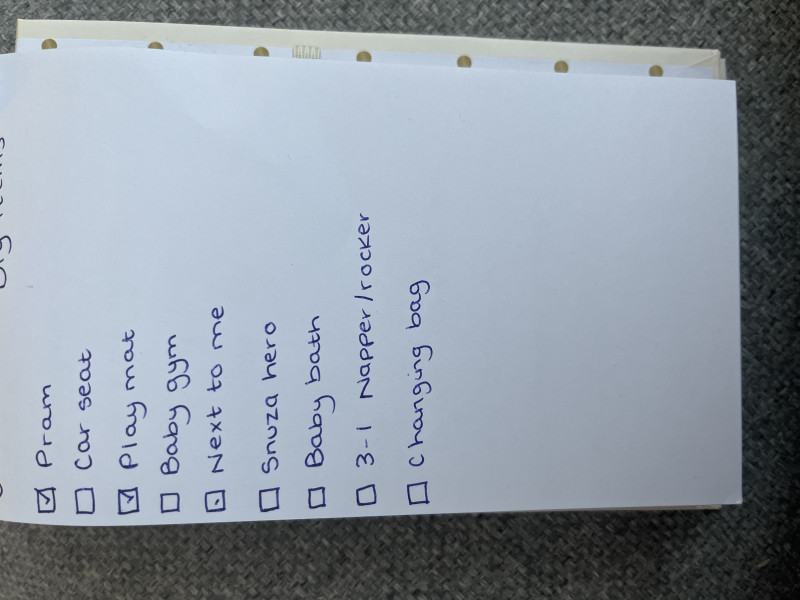 Big items
☑ Pram
☐ Car seat
☑ Play mat
☐ Baby gym
⊡ Next to me
☐ Snuza hero
☐ Baby bath
☐ 3-1 Napper/rocker
☐ Changing bag